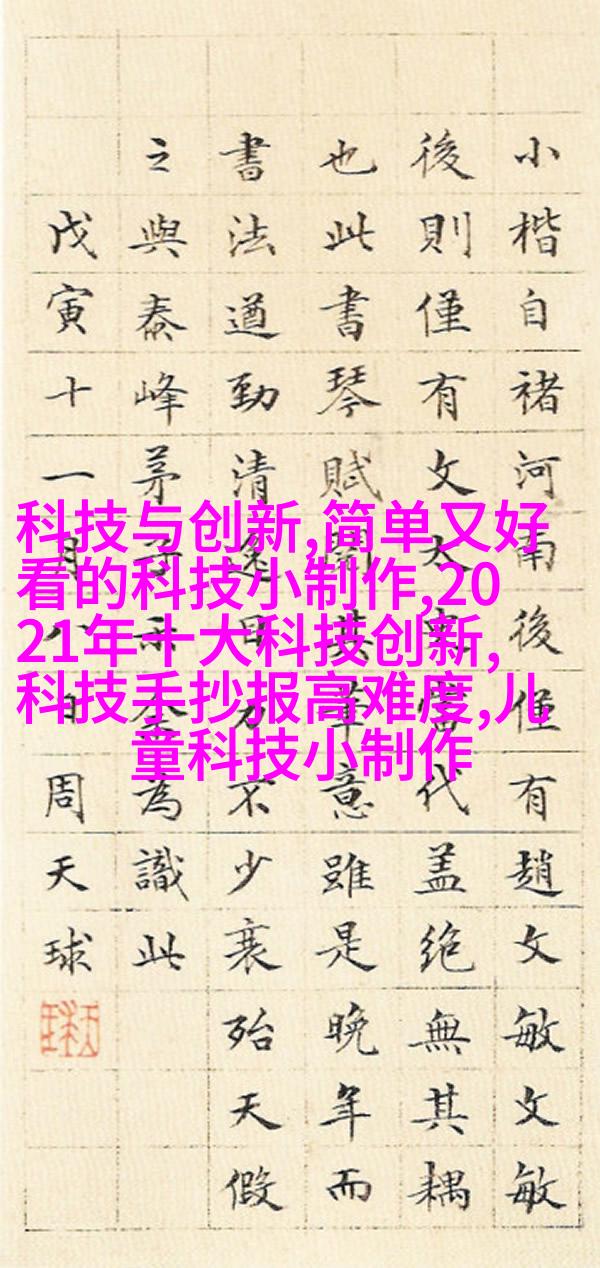 小楷自褚河南後僅有趙文敏文敏
後則僅有文太當代盖絶無其耦
也此書琴賦其筆意雖是晚年而
書法遒勁清不少衰殆天假
之與泰峰茅子示余為識此
戊寅十一月八日周天球
科技与创新,简单又好
看的科技小制作,20
21年十大科技创新,
科技手抄报高难度,儿
童科技小制作